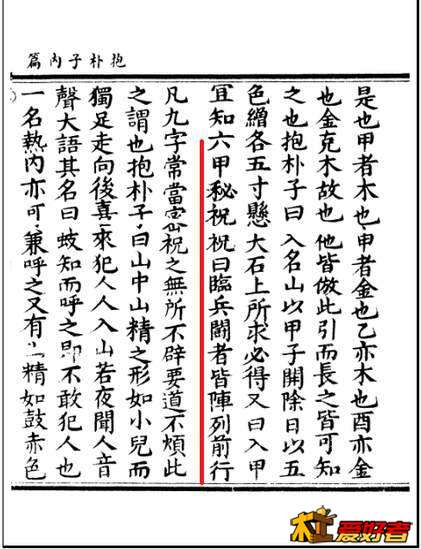 抱朴子內篇
是也甲者木也甲者金也乙亦木也酉亦金
也金克木故也他皆倣此引而長之皆可知
之也抱朴子曰入名山以甲子開除日以五
色繒各五寸懸大石上所求必得又曰入甲
宜知六甲秘祝祝曰臨兵鬭者皆陣列前行
凡九字常當密祝之無所不辟要道不煩此
之謂也抱朴子曰山中山精之形如小兒而
獨足走向後喜來犯人人入山若夜聞人音
聲大語其名曰蚑知而呼之即不敢犯人也
一名熱內亦可兼呼之又有山精如鼓赤色
爱好者